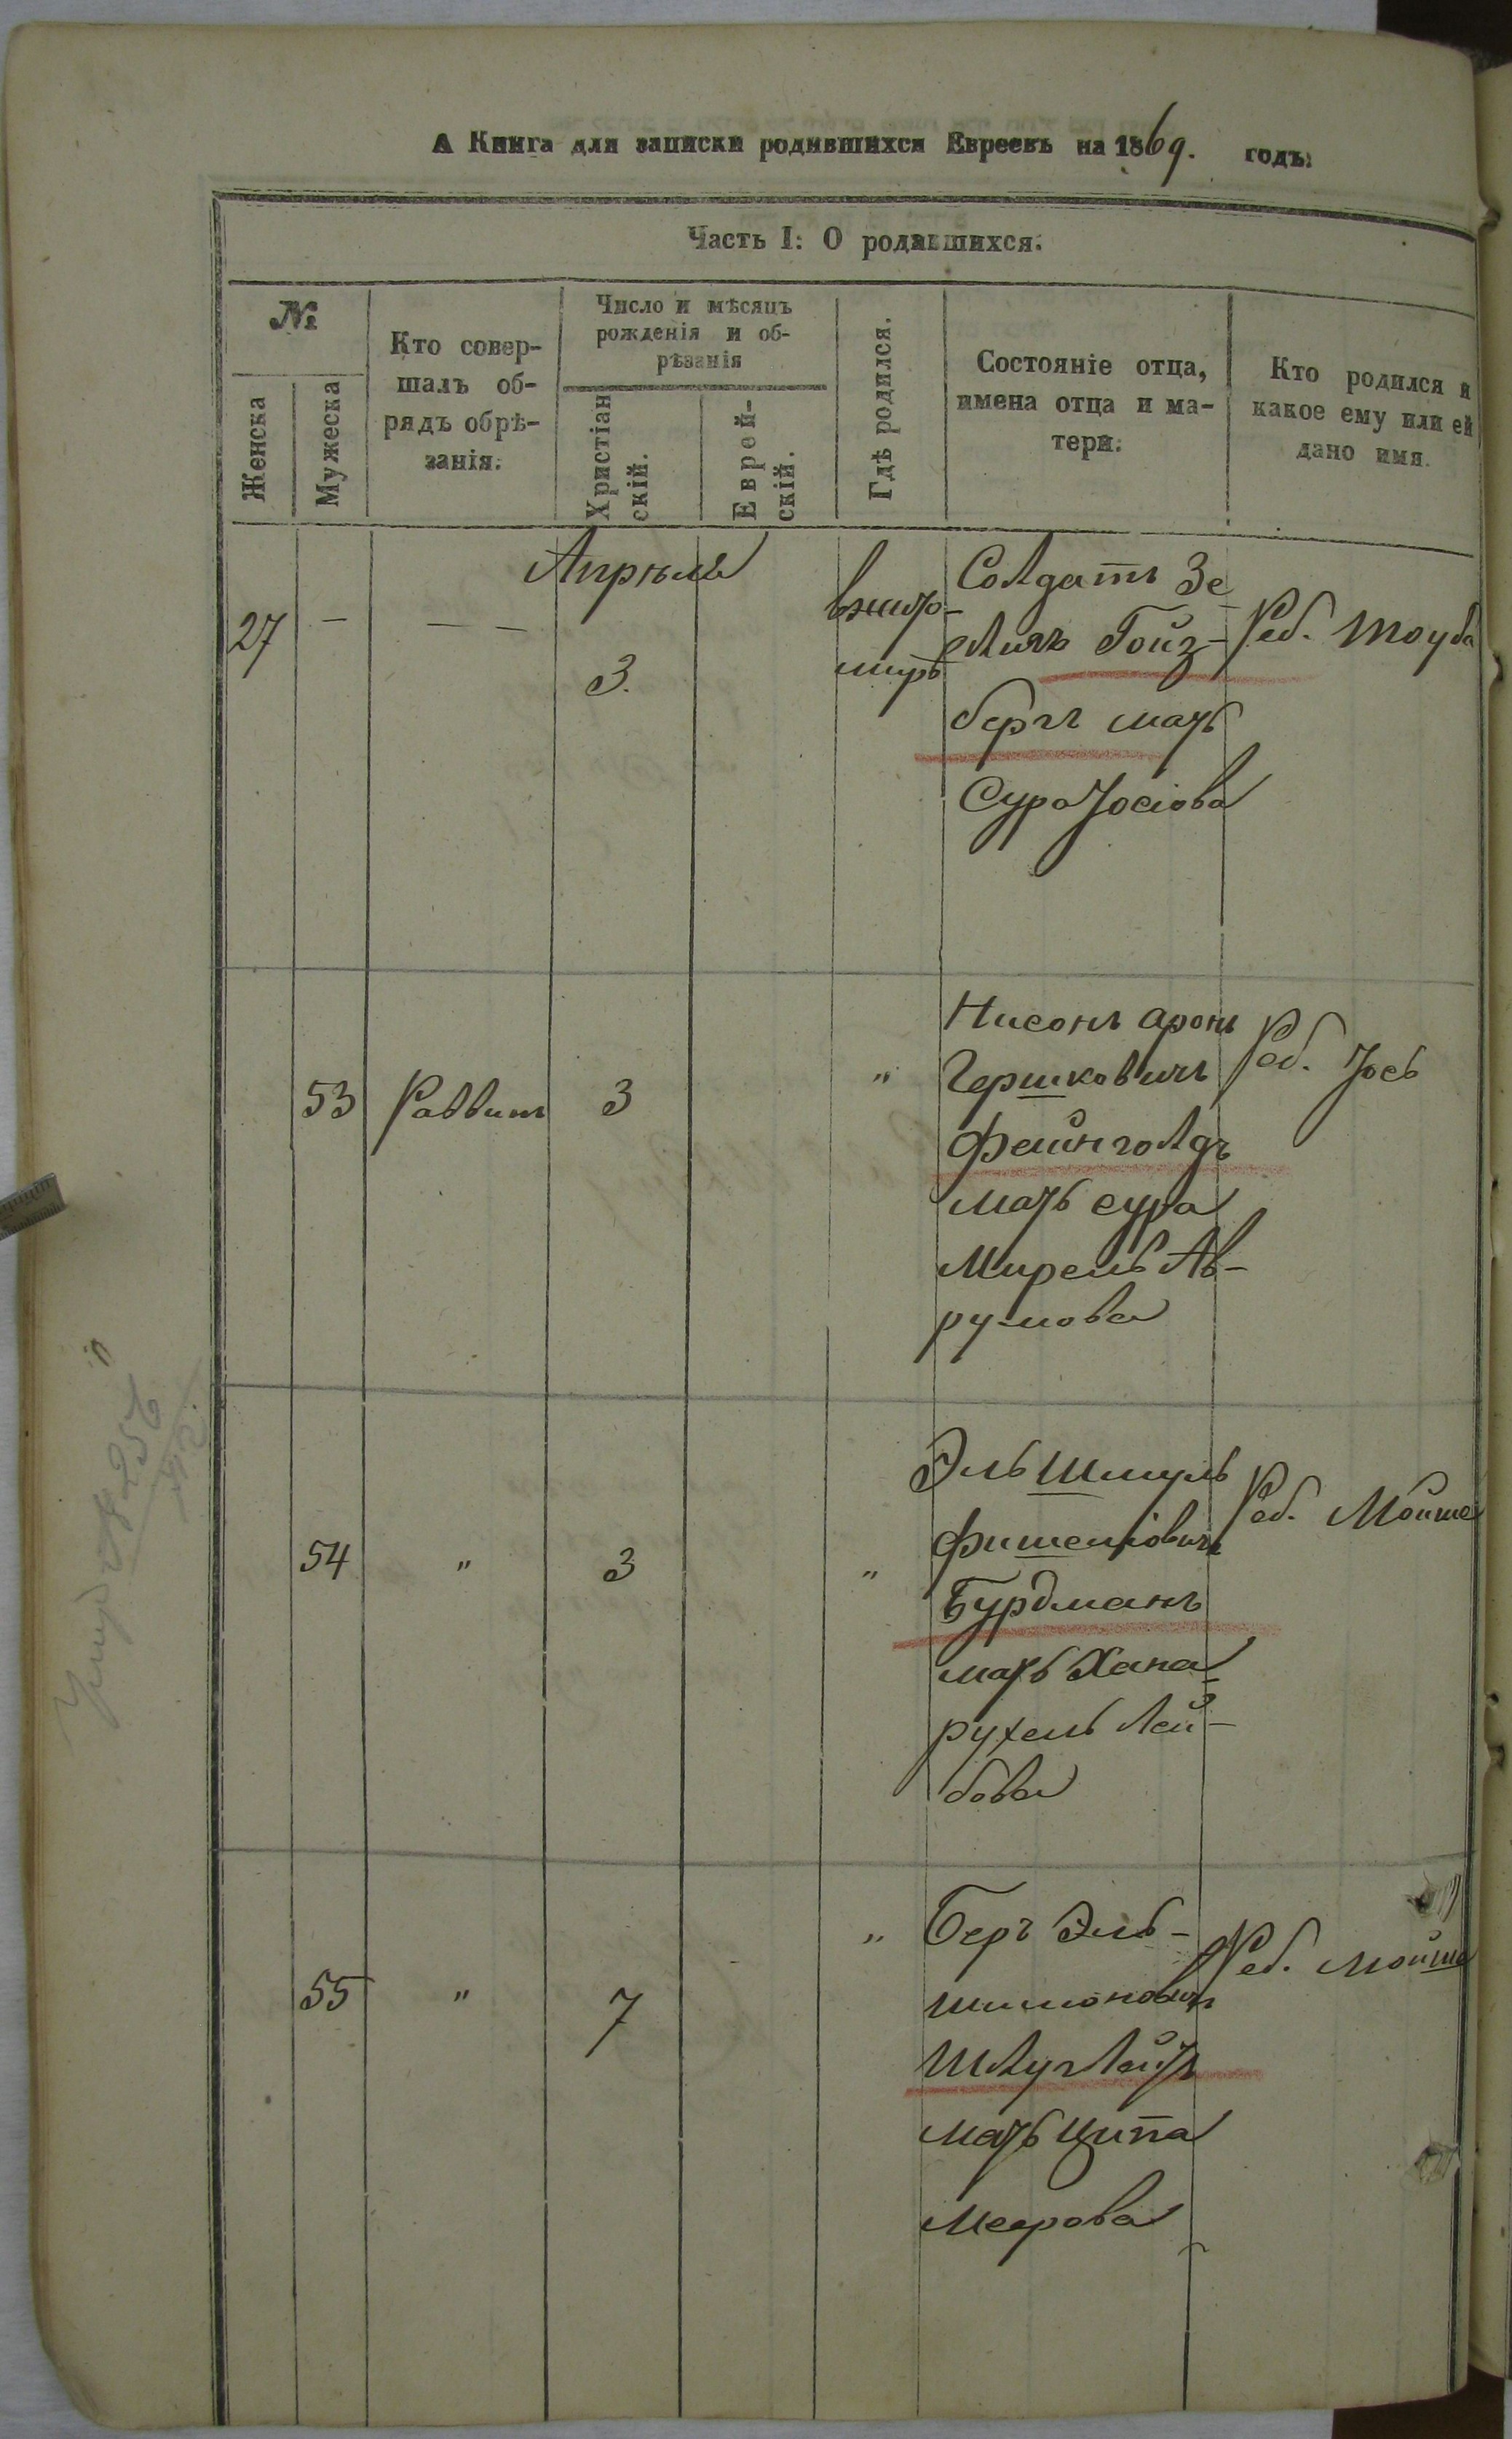 А Книга для записки родившихся Евреевъ на 1869. годъ.
Часть I: О родившихся.
№
Женска
Мужеска
Кто совер-
шалъ об-
рядъ обрѣ-
занія.
Число и мѣсяцъ
рожденія и об-
рѣзанія
Христіан
скій.
Еврей-
скій.
Гдѣ родился.
Состояніе отца,
имена отца и ма-
тери.
Кто родился и
какое ему или ей
дано имя.
Апрѣль
27
—
— —
3.
вжито-
миръ
Солдатъ Зе
Гойз-
бергъ мать
Сура Іосіова
Реб. Тоуба
53
Раввинъ
3
"
Нисонъ Аронъ
Гершковичъ
Фейнголдъ
мать Сура
Мирель Ав-
румова
Реб. Іось
54
"
3
"
Эль Шмуль
Фишеліовичъ
Бурдманъ
мать Хана
рухель Лей-
бова
Реб. Мойше
55
"
7
"
Беръ Эль-
Шимоновичъ
мать Ципа
Меерова
Реб. Мойше